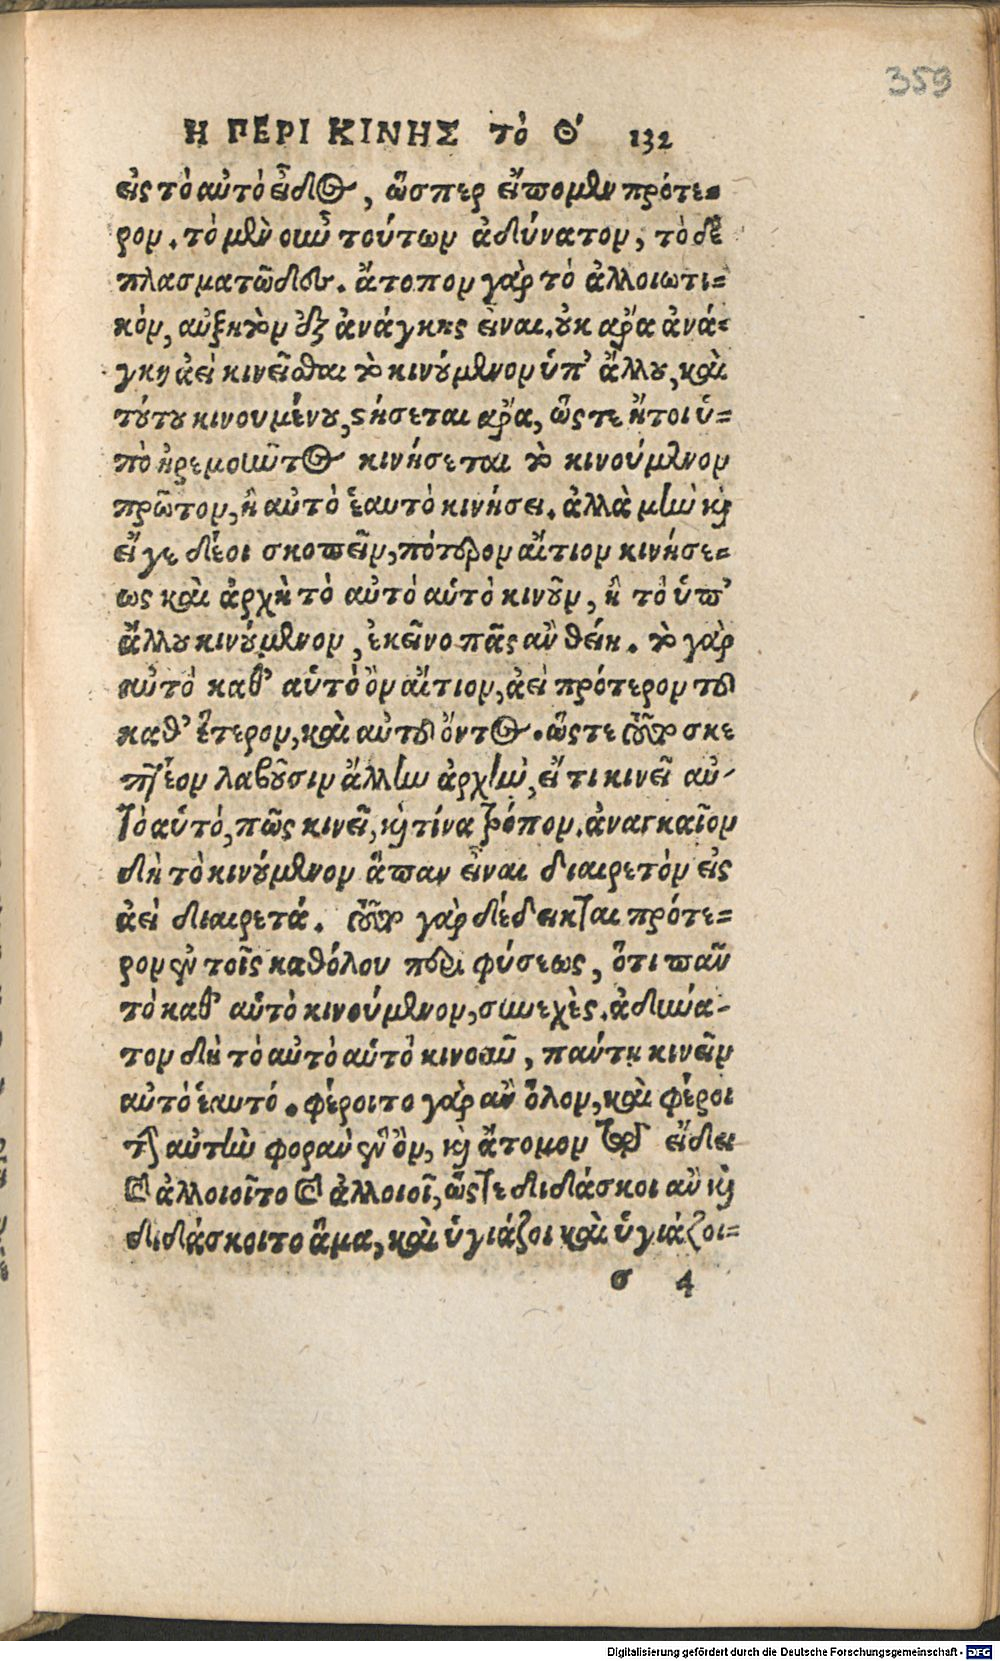 359
Η ΠΕΡΙ ΚΙΝΗΣ τὸ Θ΄ 132
εἰς τὸ αὐτὸ εἶδος, ὥσπερ εἴπομεν πρότε-
ρον. τὸ μὲν οὖν τούτων ἀδύνατον, τὸ δὲ
πλασματῶδες. ἄτοπον γὰρ τὸ ἀλλοιωτι-
κὸν, αὐξητὸν ἐξ ἀνάγκης εἶναι. οὐκ ἄρα ἀνά-
γκη ἀεὶ κινεῖσθαι τὸ κινούμενον ὑπ' ἄλλου, καὶ
τούτου κινουμένου, στήσεται ἄρα, ὥστε ἤτοι ὑ-
πὸ ἠρεμοῦντος κινήσεται τὸ κινούμενον
πρῶτον, ἢ αὐτὸ ἑαυτὸ κινήσει. ἀλλὰ μὴν καὶ
εἴ γε δέοι σκοπεῖν, πότερον αἴτιον κινήσε-
ως καὶ ἀρχὴ τὸ αὐτὸ αὑτὸ κινοῦν, ἢ τὸ ὑπ'
ἄλλου κινούμενον, ἐκεῖνο πᾶς ἂν θείη. τὸ γὰρ
αὐτὸ καθ' αὑτὸ ὂν αἴτιον, ἀεὶ πρότερον τοῦ
καθ' ἕτερον, καὶ αὐτοῦ ὄντος. ὥστε τοῦτο σκε
πτέον λαβοῦσιν ἄλλην ἀρχὴν, εἴ τι κινεῖ αὐ-
τὸ αὑτὸ, πῶς κινεῖ, καὶ τίνα τρόπον. ἀναγκαῖον
δὴ τὸ κινούμενον ἅπαν εἶναι διαιρετὸν εἰς
ἀεὶ διαιρετά. τοῦτο γὰρ δέδεικται πρότε-
ρον ἐν τοῖς καθόλου περὶ φύσεως, ὅτι πᾶν
τὸ καθ' αὑτὸ κινούμενον, συνεχὲς. ἀδύνα-
τον δὴ τὸ αὐτὸ αὑτὸ κινοῦν, πάντη κινεῖν
αὐτὸ ἑαυτό. φέροιτο γὰρ ἂν ὅλον, καὶ φέροι
τὴν αὐτὴν φορὰν ἓν ὂν, καὶ ἄτομον τῷ εἴδει
καὶ ἀλλοιοῖτο καὶ ἀλλοιοῖ, ὥστε διδάσκοι ἂν καὶ
διδάσκοιτο ἅμα, καὶ ὑγιάζοι καὶ ὑγιάζοι-
σ 4
Digitalisierung gefördert durch die Deutsche Forschungsgemeinschaft - DFG